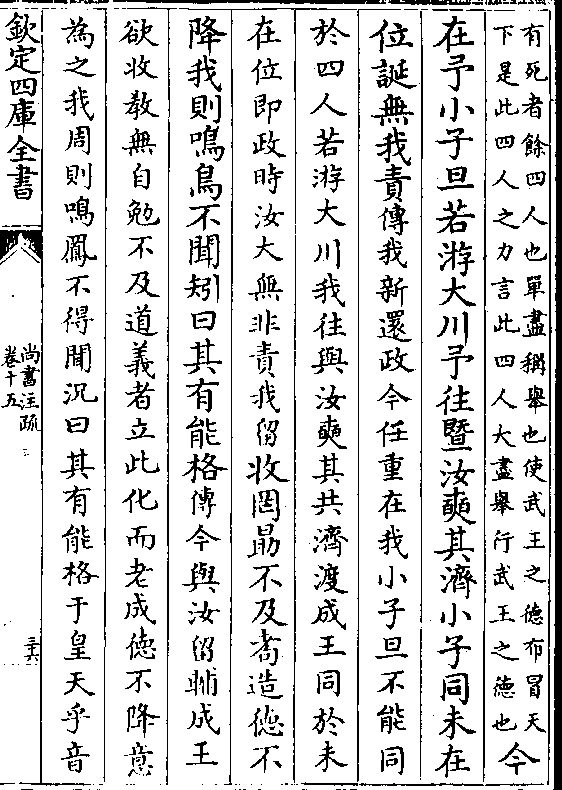 有死者餘四人也單盡稱舉也使武王之德布冒天
下是此四人之力言此四人大盡舉行武王之德也今
在予小子旦若游大川予往暨汝奭其濟小子同未在
位誕無我責傳我新還政今任重在我小子旦不能同
於四人若游大川我往與汝奭其共濟渡成王同於未
在位即政時汝大無非責我留收罔勗不及耇造德不
降我則鳴鳥不聞矧曰其有能格傳今與汝留輔成王
欲收敎無自勉不及道義者立此化而老成德不降意
為之我周則鳴鳳不得聞況曰其有能格于皇天乎音
欽定四庫全書
尚書注疏
卷十五
三六